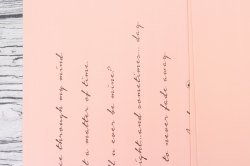 through my mind.
a matter of time.
ever be mine?
and sometimes... day
to never fade away